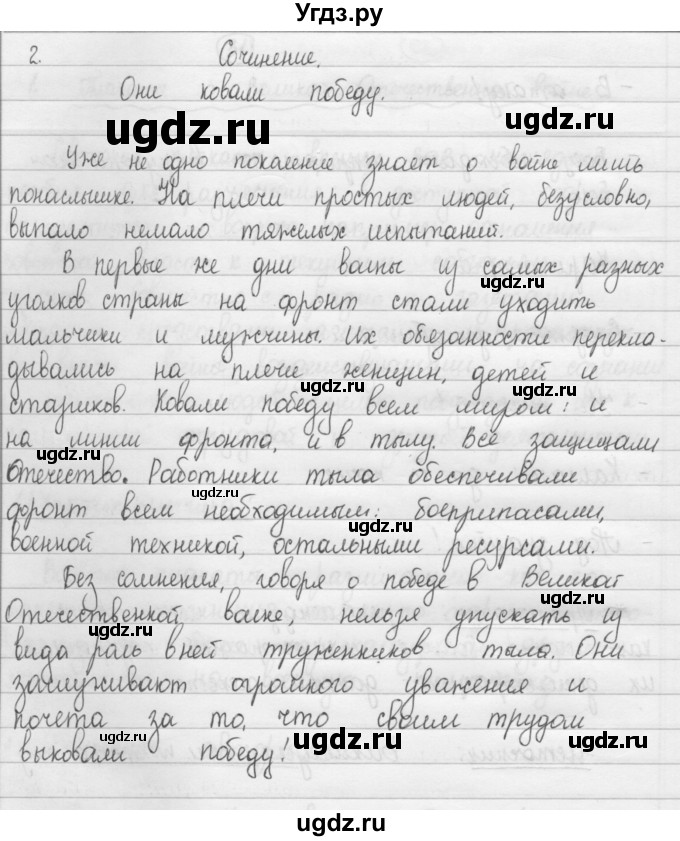 Угдз.ру
2. Сочинение.
Они ковали победу.
ugdz.ru ugdz.ru
Уже не одно поколение знает о войне лишь
понаслышке. На плечи простых людей, безусловно,
выпало немало тяжелых испытаний.
ugdz.ru
В первые же дни войны из самых разных
ugdz.ru
уголков страны на фронт стали уходить
мальчики и мужчины. Их обязанности перекла-
дывались на плечи женщин, детей и
ugdz.ru
стариков. Ковали победу всем миром: и
на линии фронта, и в тылу. Все защищали
ugdz.ru
Отечество. Работники тыла обеспечивали
ugdz.ru
фронт всем необходимым: боеприпасами,
ugdz.ru
военной техникой, остальными ресурсами.
Без сомнения, говоря о победе в Великой
Отечественной войне, нельзя упускать из
ugdz.ru
вида роль в ней труженников тыла. Они
ugdz.ru
заслуживают огромного уважения и
почета за то, что своим трудом
ugdz.ru ugdz.ru ugdz.ru
выковали победу!
ugdz.ru